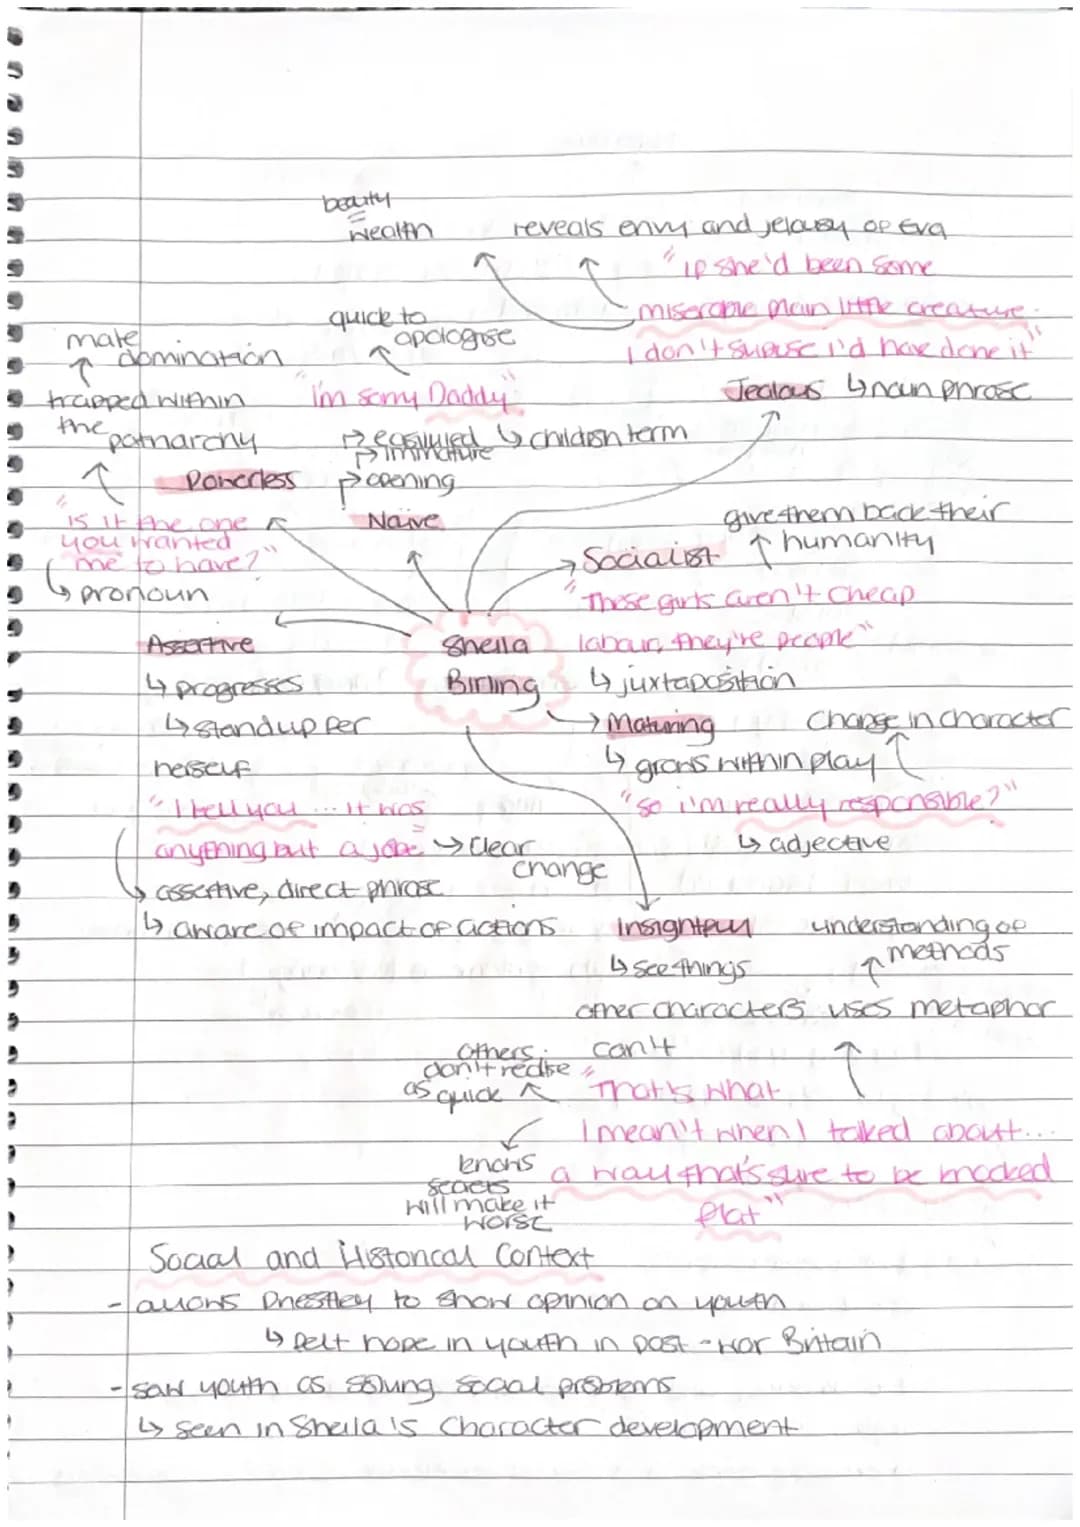 beauty
=
wealth
reveals envy and jelousy of Eva
"if she'd been some
miserable plain little creature.
I don't supose i'd have done it"
Jealous ↳ noun phrase
quick to
apologise
"i'm sorry Daddy"
↳ childish term
immature
opening
Naive
male
domination
trapped within
the
patriarchy
Powerless
"is it the one
you wanted
me to have?"
↳ pronoun
give them back their
humanity
Socialist
"These girls aren't cheap
labour, they're people"
↳ juxtaposition
Sheila
Birling
Assertive
↳ progresses
↳ stand up for
herself
"I tell you ... it was
anything but a joke" → clear
change
assertive, direct phrase
↳ aware of impact of actions
Maturing
change in character
↳ grows within play
"so i'm really responsible?"
↳ adjective
Insightful
understanding of
methods
↳ see things
other characters
uses metaphor
can't
others
don't realise
as quick
"That's what
I mean't when I talked about...
a way that's sure to be mocked
flat"
knows
secrets
will make it
worse
Social and Historical Context
- allows Priestley to show opinion on youth
↳ felt hope in youth in post-war Britain
- saw youth as solving social problems
↳ seen in Sheila's character development